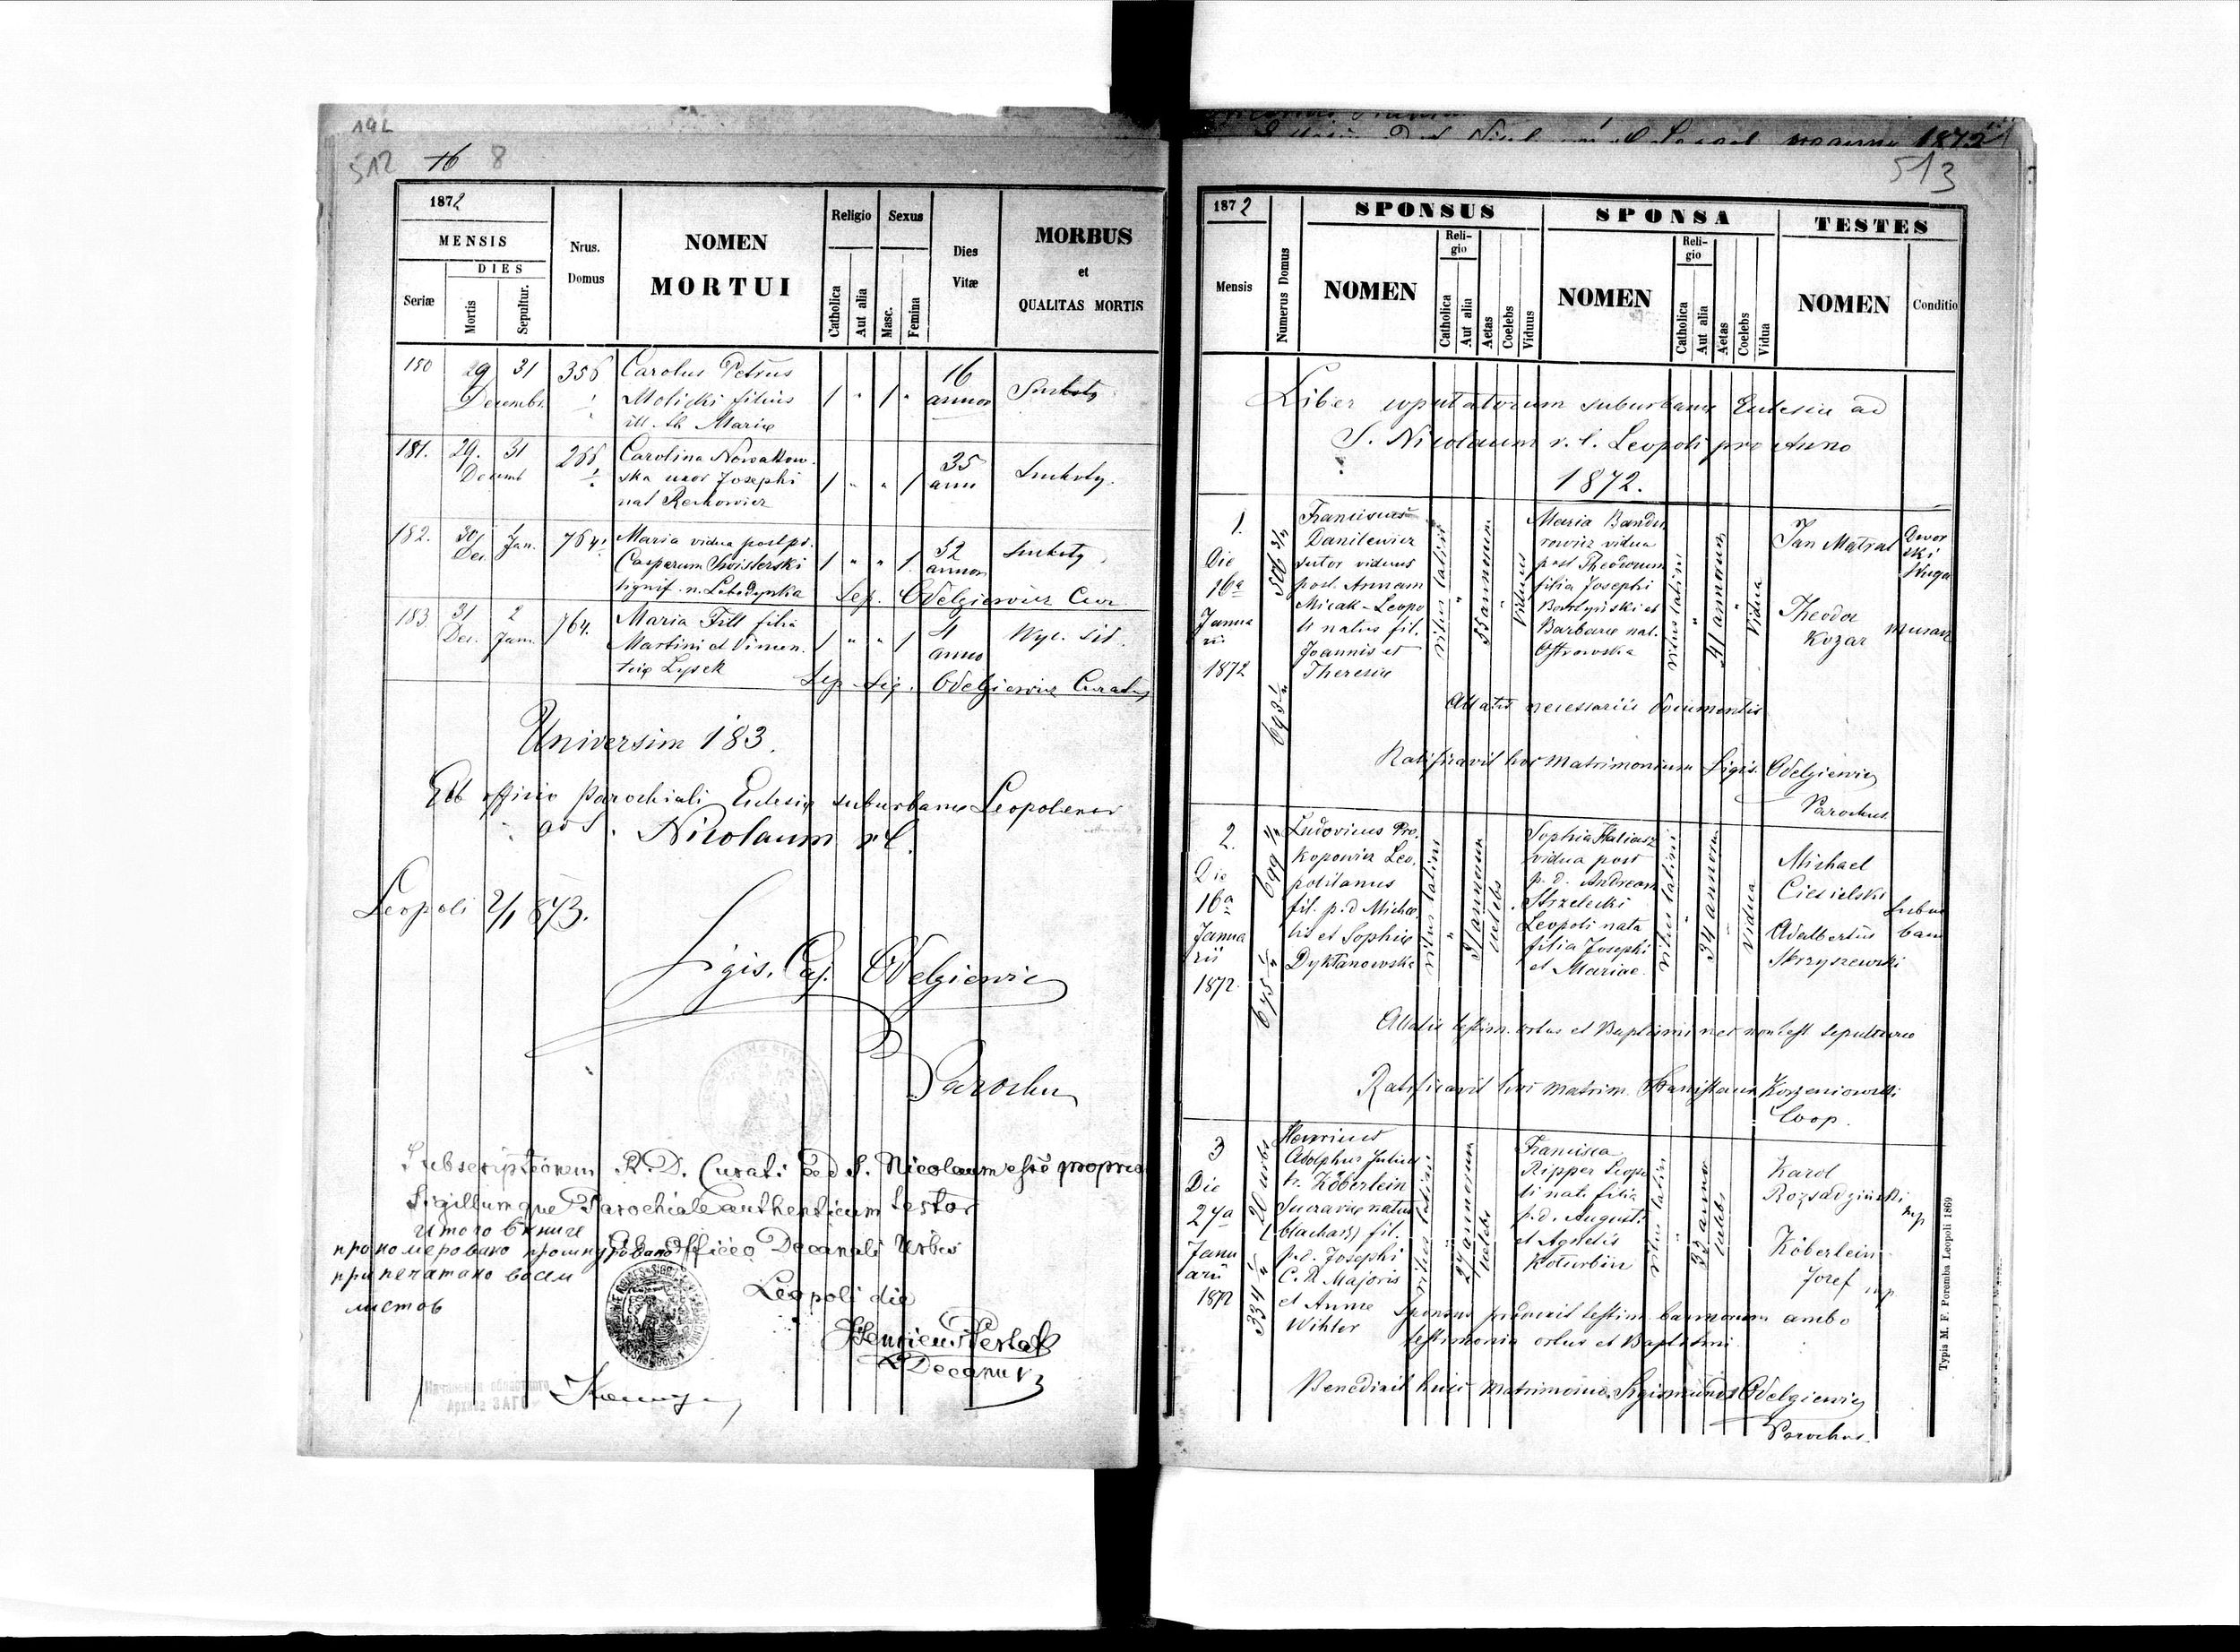 512
8
1872
MENSIS
DIES
Seriæ
Mortis
Sepultur.
Nrus. Domus
NOMEN
MORTUI
Religio
Catholica
Aut alia
Sexus
Masc.
Femina
Dies
Vitæ
MORBUS
et
QUALITAS MORTIS
180 29 31 356 Carolus Petrus 16
Decembr. Molicki filius / " / " annor Suchoty
ill. th. Mariæ
181. 29. 31 Carolina Nowakow- 35
Decemb ska uxor Josephi / " " / ann Suchoty.
nat Reckowicz
182. 30/ Jan. 764 Maria vidua post p.d. 52
Dec. Casparum Swisterski / " " / annor Suchoty
signif. n. Lebedynska Sep. Odelgiewicz Cur
183. 31 2 764. Maria Till filia 4
Dec. Jann. Martini et Vincen. / " " / anno
tiæ Lysek
Sep. Sig. Odelgiewicz Curatus
Universim 183.
Ab officio Parochiali Eclesiæ suburbanæ Leopoliensi
ad S. Nicolaum r.l.
Leopoli 2/1 873.
Sigis. Caj. Odelgiewicz
Parochus
Subscriptionem R.D. Curati ad S. Nicolaum esse propria
Sigillumque Parochiale authenticum testor
Ab Officio Decanali Urbis
Leopoli die
Decanus
Итого в книге
прономеровано прошнуровано
припечатано восем
листов
Начальник областного
Архива ЗАГС
1872
513
1872
Mensis
Numerus Domus
SPONSUS
NOMEN
Reli-
gio
Catholica
Aut alia
Aetas
Coelebs
Viduus
SPONSA
NOMEN
Reli-
gio
Catholica
Aut alia
Aetas
Coelebs
Vidua
TESTES
NOMEN
Conditio
Liber copulatorum suburbanæ Eclesiæ ad
S. Nicolaum r.l. Leopoli pro Anno
1872.
1.
Die
16a
Janua
rii
1872
Franciscus
Danilewicz
sutor viduus
post Annam
Micak - Leopo
li natus fil.
Joannis et
Theresiæ
ritus latini
"
55 annorum
"
Viduus
Maria Bandu
rowicz vidua
post Theodorum
filia Josephi
et
Barbaræ nat.
Ostrowska
ritus latini
"
41 annorum
"
Vidua
Jan
Theodor
Kozar
Dwor
ski
sługa
murarz
Allatis necessariis documentis
Ratificavit hoc Matrimonium Sigis. Odelgiewicz
Parochus
2.
Die
16a
Janua
rii
1872.
699
675
Ludovicus Pro.
kopowicz Leo.
politanus
fil. p.d. Michae
lis et Sophiæ
Dyktanowska
ritus latini
"
31 annorum
celebs
Sophia Haliasz
vidua post
p.d. Andream
Strzelecki
Leopoli nata
filia Josephi
et Mariae.
ritus latini
"
34 annorum
"
Vidua
Michael
Ciesielski
Adalbertus
Skrzyszewski
subur
bani
Allatis testim. ortus et Baptismi nec non test sepulturæ
Ratificavit hoc matrim. Stanislaus Korzeniowski
Coop.
3
Die
27a
Janu
arii
1872
20 urbs
334
Henricus
Adolphus Julius
tr. Köberlein
Sucraviæ natus
(blacharz) fil.
p.d. Josephi
C.R. Majoris
et Annæ
Wihler
ritus latini
"
27 annorum
celebs
Francisca
Ripper Leopo
li nata filia
p.d. Augusti
et Agnetis
Koturbin
ritus latini
"
33 annor
celebs
Karol
Rozsadziński
mp
Köberlein
Josef mp
Sponsus produxit testim bannorum ambo
testimonia ortus et Baptismi
Benedixit huic Matrimonio Sigismundus Odelgiewicz
Parochus.
Typis M. F. Poremba Leopoli 1869